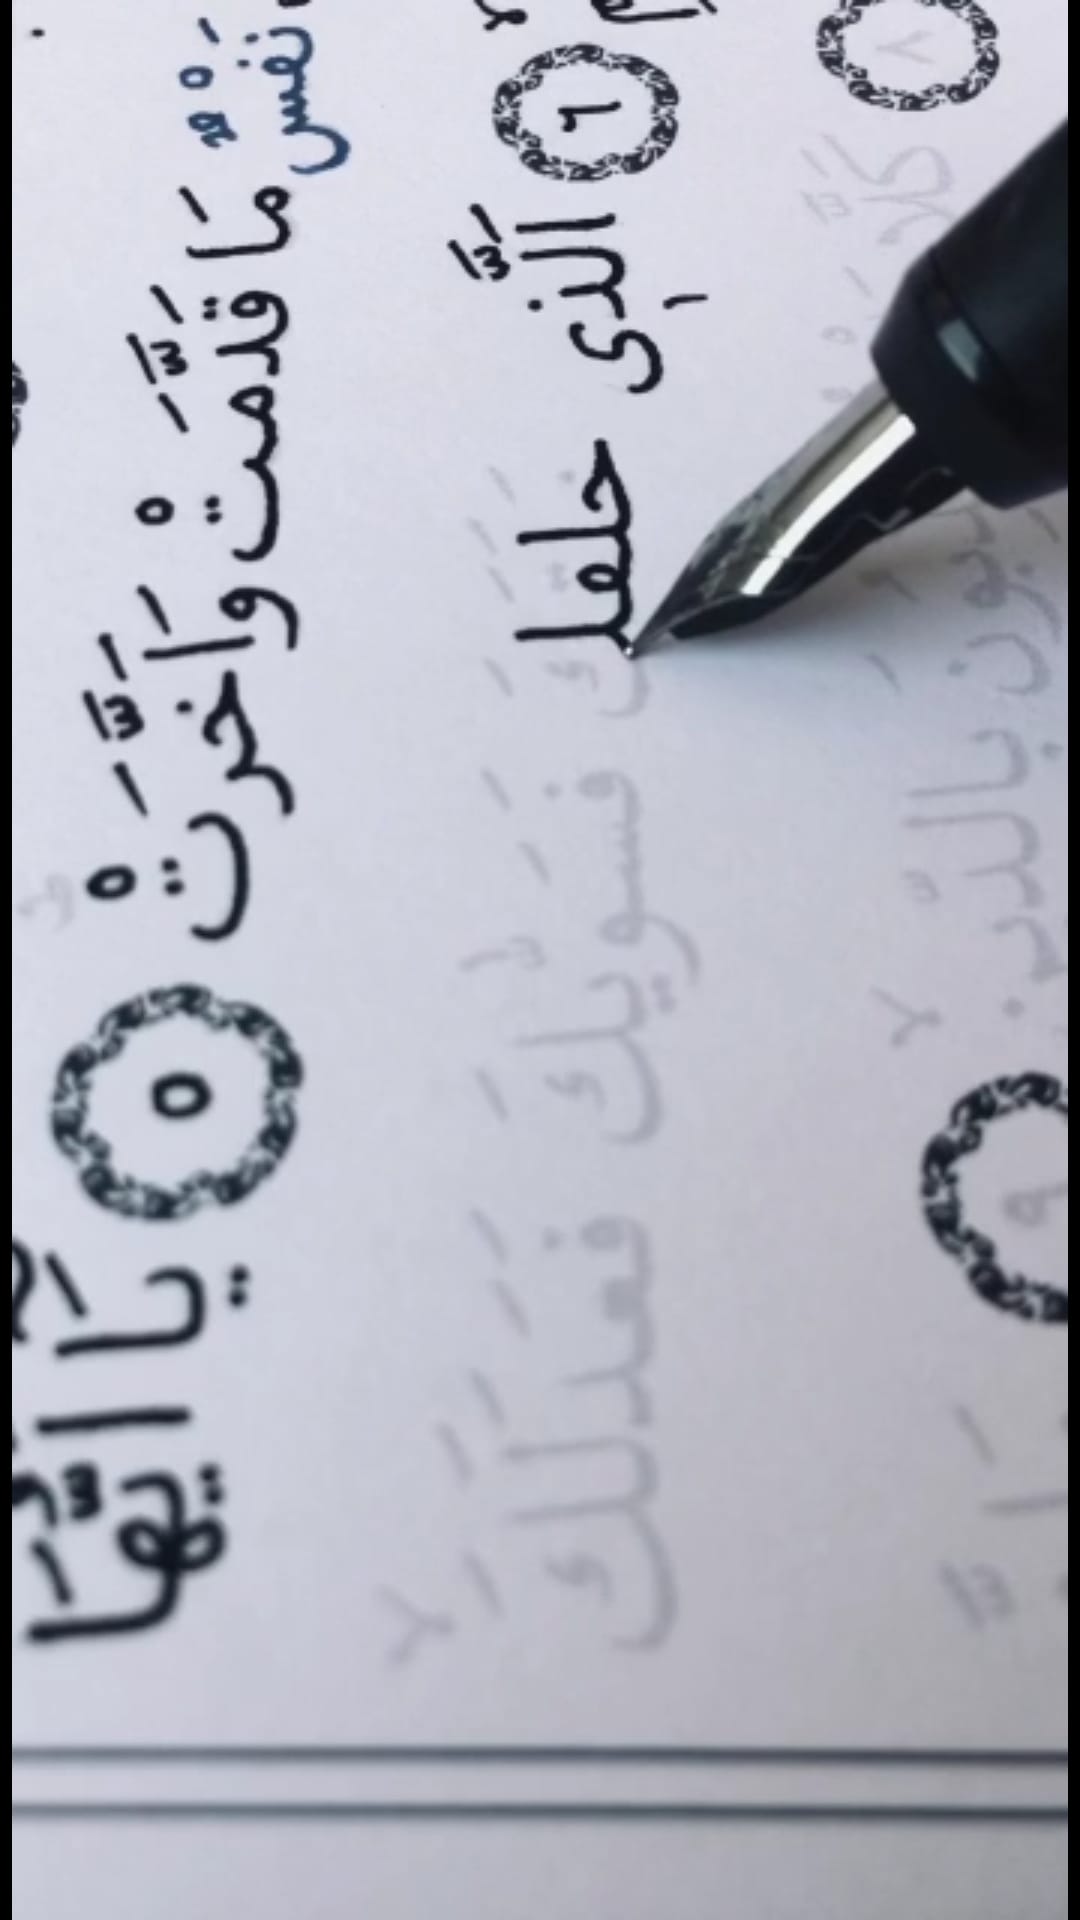 نَفْسٌ مَّا قَدَّمَتْ وَاَخَّرَتْ ٥ يَا اَيُّهَا
٦ الَّذِى خَلَقَكَ فَسَوّٰيكَ فَعَدَلَكَ
٨ كَلَّا بَلْ تُكَذِّبُونَ بِالدِّينِ ٩